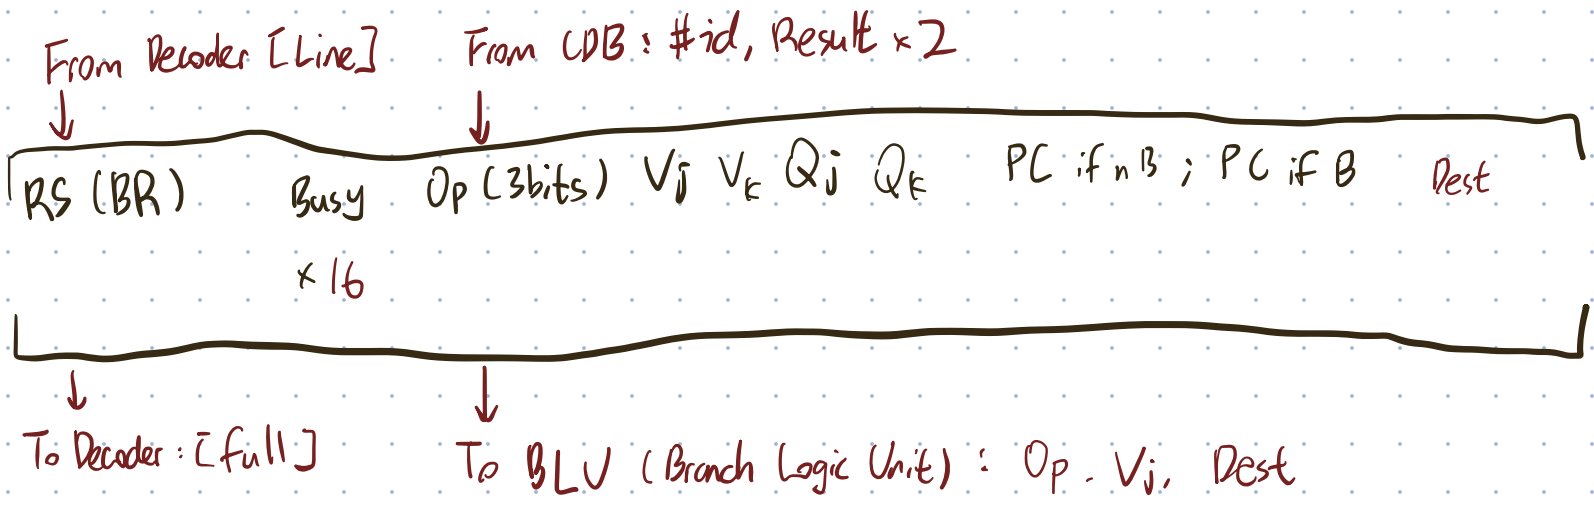 From Decoder [Line]
From CDB : #id, Result × 2
RS (BR) Busy Op (3bits) Vj Vk Qj Qk PC if n B ; PC if B Dest
× 16
To Decoder : [full]
To BLU (Branch Logic Unit) : Op. Vj, Dest